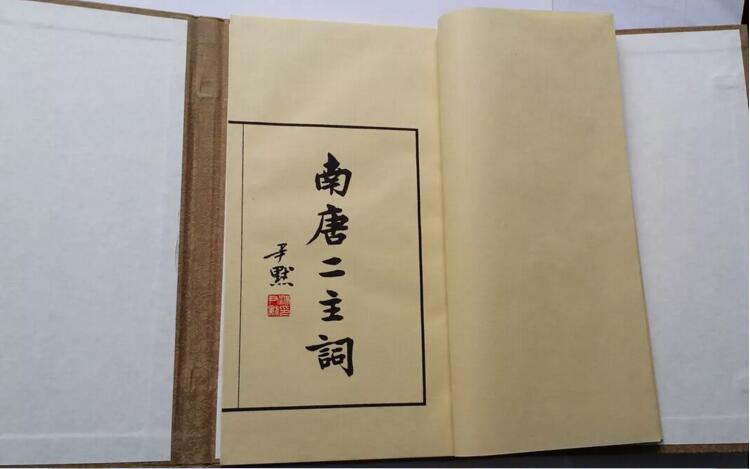 南唐二主詞
尹默